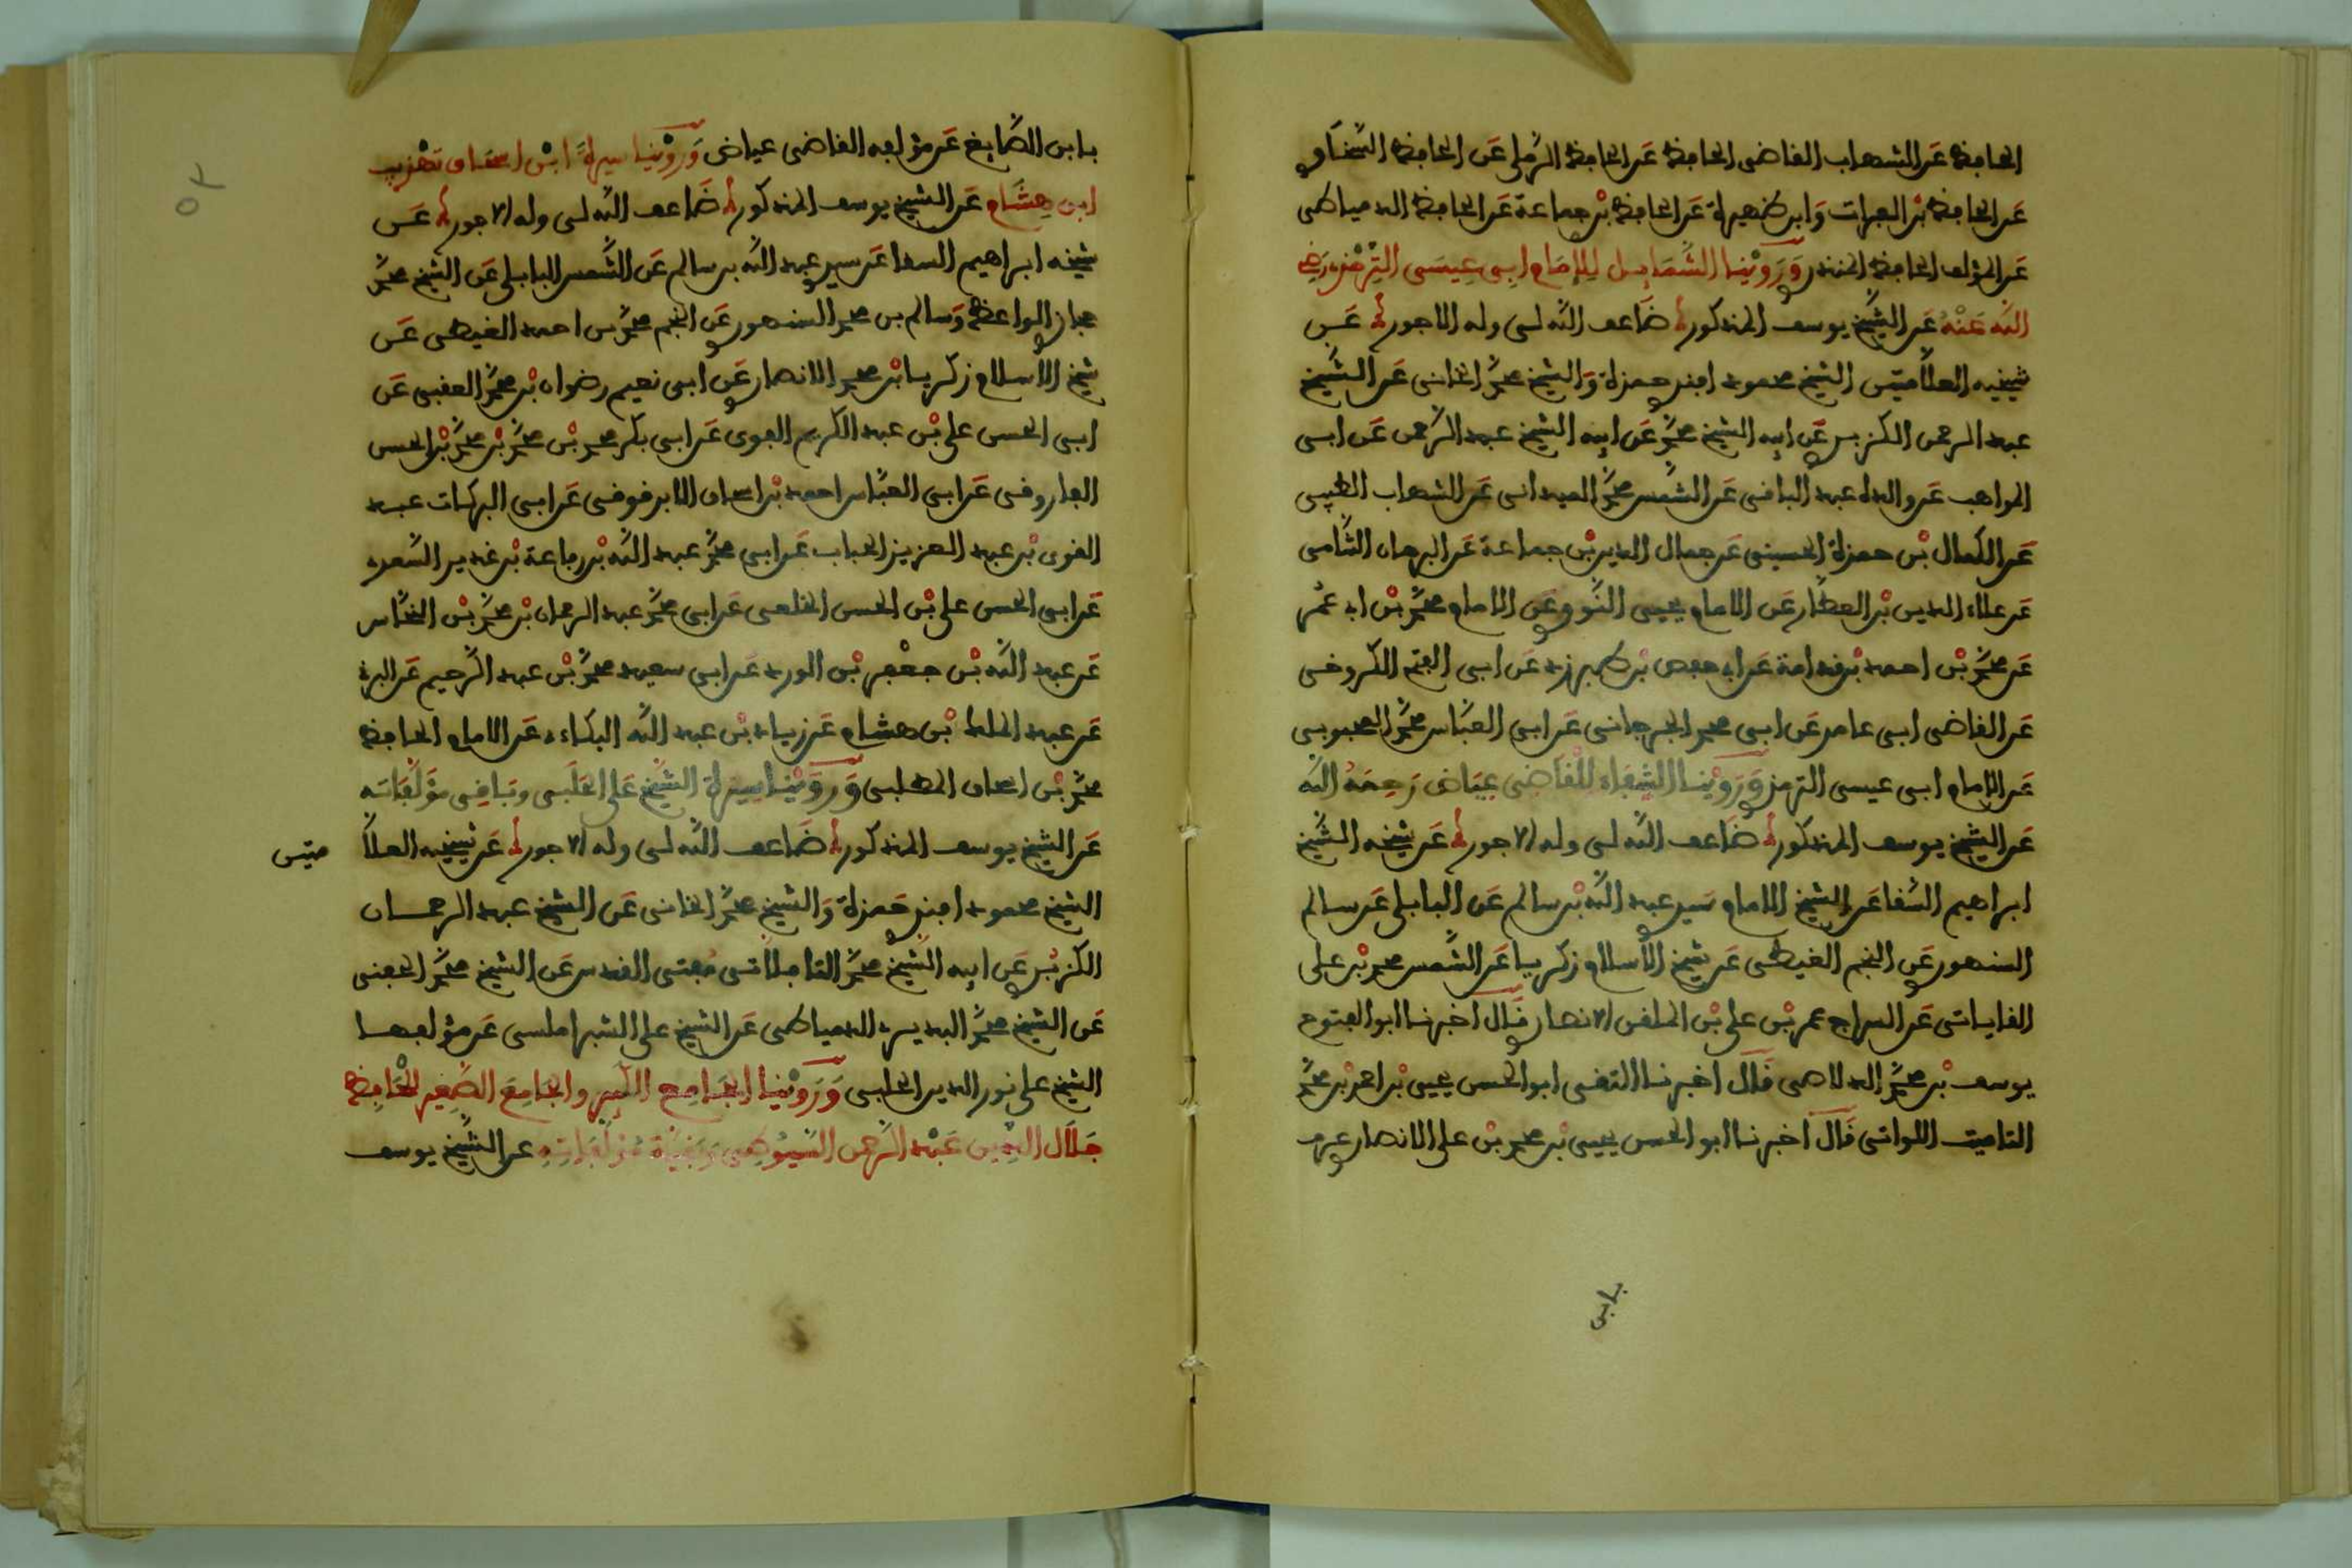 الحافظ عن الشهاب القاضي الحافظ عن الحافظ الرملي عن الحافظ السخاوي
عن الحافظ بن الفرات وابن ظهيرة عن الحافظ بن جماعة عن الحافظ الدمياطي
عن المؤلف الحافظ المنذري وَرَوَيْنا الشَّمَايِل لِلإمَام ابِي عِيسَى التِّرْمِذِي رَضِي
الله عَنْهُ عن الشيخ يوسف المذكور ضَاعف الله لى وله الاجور عن
شيخيه العلّامتين الشيخ محمود افندي حمزة وَالشيخ محمّد الخاني عن الشّيخ
عبد الرحمن الكزبري عن ابيه الشيخ محمّد عن ابيه الشيخ عبد الرّحمن عن ابي
المواهب عن والده عبد الباقي عن الشّمس محمّد الميداني عن الشهاب الطيبي
عن الكمال بْن حمزة الحسيني عن جمال الدين بْن جماعة عن البرهان الشّامي
عن علاء الدين بْن العطّار عن الامام يحيى النّووي عن الامام محمّد بْن ابي عمر
عن محمّد بْن احمد بْن قدامة عن ابي حفص بْن طبرزد عن ابي الفتح الكروخي
عن القاضي ابي عامر عن ابي محمد الجرجاني عن ابي العبّاس محمّد المحبوبي
عن الامام ابي عيسى الترمذي وَرَوَيْنا الشِّفَاء لِلْقَاضِي عِيَاض رَحِمَهُ الله
عن الشيخ يوسف المذكور ضَاعف الله لى وله الاجور عن شيخه الشّيخ
ابراهيم السّقا عن الشيخ الامام سَيدي عبد الله بْن سالم عن البابلي عن سالم
السنهوري عن النجم الغيطي عن شيخ الاسلام زكريا عن الشّمس محمد بْن علي
القاياتي عن السراج عمر بْن علي بْن الملقن الانصاري قَال اخبرنا ابو الفتوح
يوسف بْن محمّد الدلاصي قَال اخبرنا التقي ابو الحسن يحيى بْن احمد بْن محمّد
التامتيت اللواتي قَال اخبرنا ابو الحسن يحيى بْن محمد بْن علي الانصاري عرف
بابن
بابن الصّايغ عن مؤلفه القاضي عياض وَرَوَيْنا سيرة ابْن اسحاق تهْذيب
ابن هِشَام عن الشيخ يوسف المذكور ضَاعف الله لى وله الاجور عن
شيخه ابراهيم السقا عن سيدي عبد الله بن سالم عن الشّمس البابلي عن الشيخ محمّد
حجازي الواعظ وَسالم بن محمد السنهوري عن النجم محمّد بن احمد الغيطي عن
شيخ الاسلام زكريا بْن محمد الانصاري عن ابي نعيم رضوان بْن محمّد العقبي عن
ابي الحسن علي بْن عبد الكريم الفوي عن ابي بكر محمد بْن محمّد بْن محمّد بْن الحسن
الفاروقي عن ابي العبّاس احمد بْن اسحاق الابرقوهي عن ابي البركات عبد
القوي بْن عبد العزيز الجباب عن ابي محمّد عبد الله بْن رفاعة بْن غدير السّعدي
عن ابي الحسن علي بْن الحسن الخلعي عن ابي محمّد عبد الرحمان بْن محمّد بْن النحّاس
عن عبد الله بْن جعْفر بْن الورد عن ابي سعيد محمّد بْن عبد الرّحيم عن البرقي
عن عبد الملك بْن هشام عن زياد بْن عبد الله البكاءي عن الامام الحافظ
محمّد بْن اسحاق المطلبي وَرَوَيْنا سيرة الشّيخ عَلي الحَلَبي وبَاقِي مؤلّفَاته
عن الشيخ يوسف المذكور ضَاعف الله لى وله الاجور عن شيخيه العلّا
متين
الشيخ محمود افندي حَمزة وَالشيخ محمّد الخاني عن الشيخ عبد الرحمان
الكزبري عن ابيه الشّيخ محمّد التافلاتي مُفتي القدس عن الشيخ محمّد الحفني
عن الشيخ محمّد البديري الدمياطي عن الشيخ علي الشبراملسي عن مؤلفها
الشيخ علي نور الدين الحلبي وَرَوَيْنا الجَامِع الكَبِير والجَامِعَ الصَّغِير لِلْحَافِظ
جَلَال الدِّين عَبْد الرّحمن السّيُوطِي وَبَقِيَّة مُؤلَّفَاتِهِ عن الشّيخ يوسف